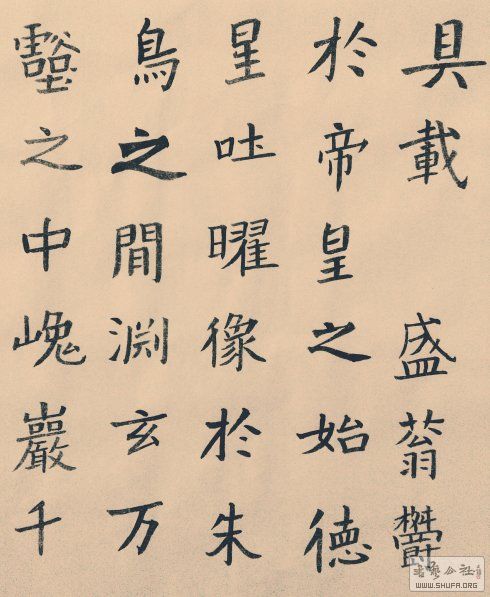 具載 盛蓊鬱
於帝皇之始徳
星吐曜像於朱
鳥之間渕玄万
壑之中巖千
书艺公社
WWW.SHUFA.ORG